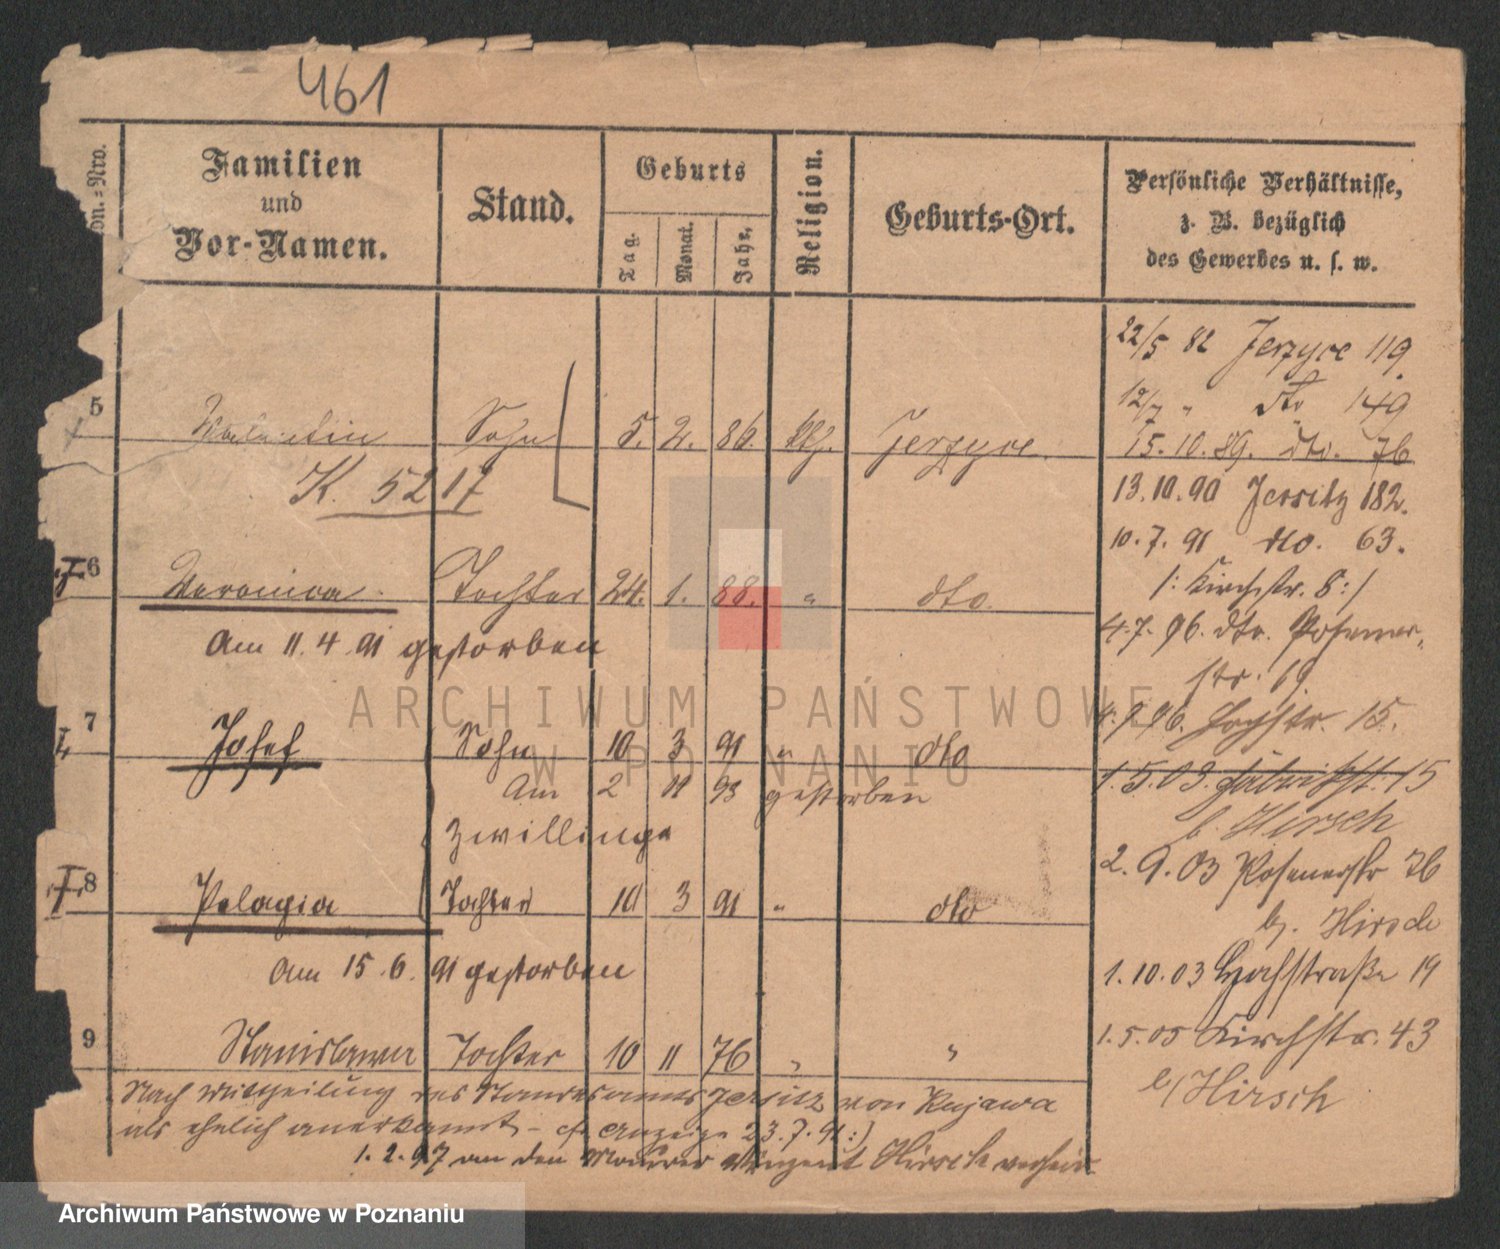 461
Familien
und
Vor-Namen.
Stand.
Geburts
Tag. Monat. Jahr.
Religion.
Geburts-Ort.
Persönliche Verhältnisse,
z. B. bezüglich
des Gewerbes u. s. w.
22/5 82 Jerzyce 119.
12/7 " dto 149
5 Valentin Sohn 5. 2. 86. kth. Jerzyce.
15.10.89. dto. 76
K. 5217
13.10.90 Jersitz 182.
10.7.91 dto. 63.
6 Veronica Tochter 24. 1. 88. " dto.
/: Kirchstr. 8 :/
Am 11.4.91 gestorben
4.7.96. dto. Posener-
str. 69.
7 Josef Sohn 10 3 91 " dto
4.9.96. Hochstr. 15.
Am 2 11 93 gestorben
1.5.03. Fabrikst. 15
b. Hirsch
Zwillinge
8 Pelagia Tochter 10 3 91 " dto
2.9.03 Posenerstr 76
b. Hirsch
Am 15.6.91 gestorben
1.10.03 Hochstraße 19
9 Stanislawa Tochter 10 11 76 " "
1.5.05 Kirchstr. 43
b/Hirsch
Nach Mittheilung des Standesamts Jersitz von Kujawa
als ehelich anerkannt - cf. Anzeige 23.7.91 :)
1.2.97 an den Maurer Vinzent Hirsch verheir.
ARCHIWUM PAŃSTWOWE
W POZNANIU
Archiwum Państwowe w Poznaniu